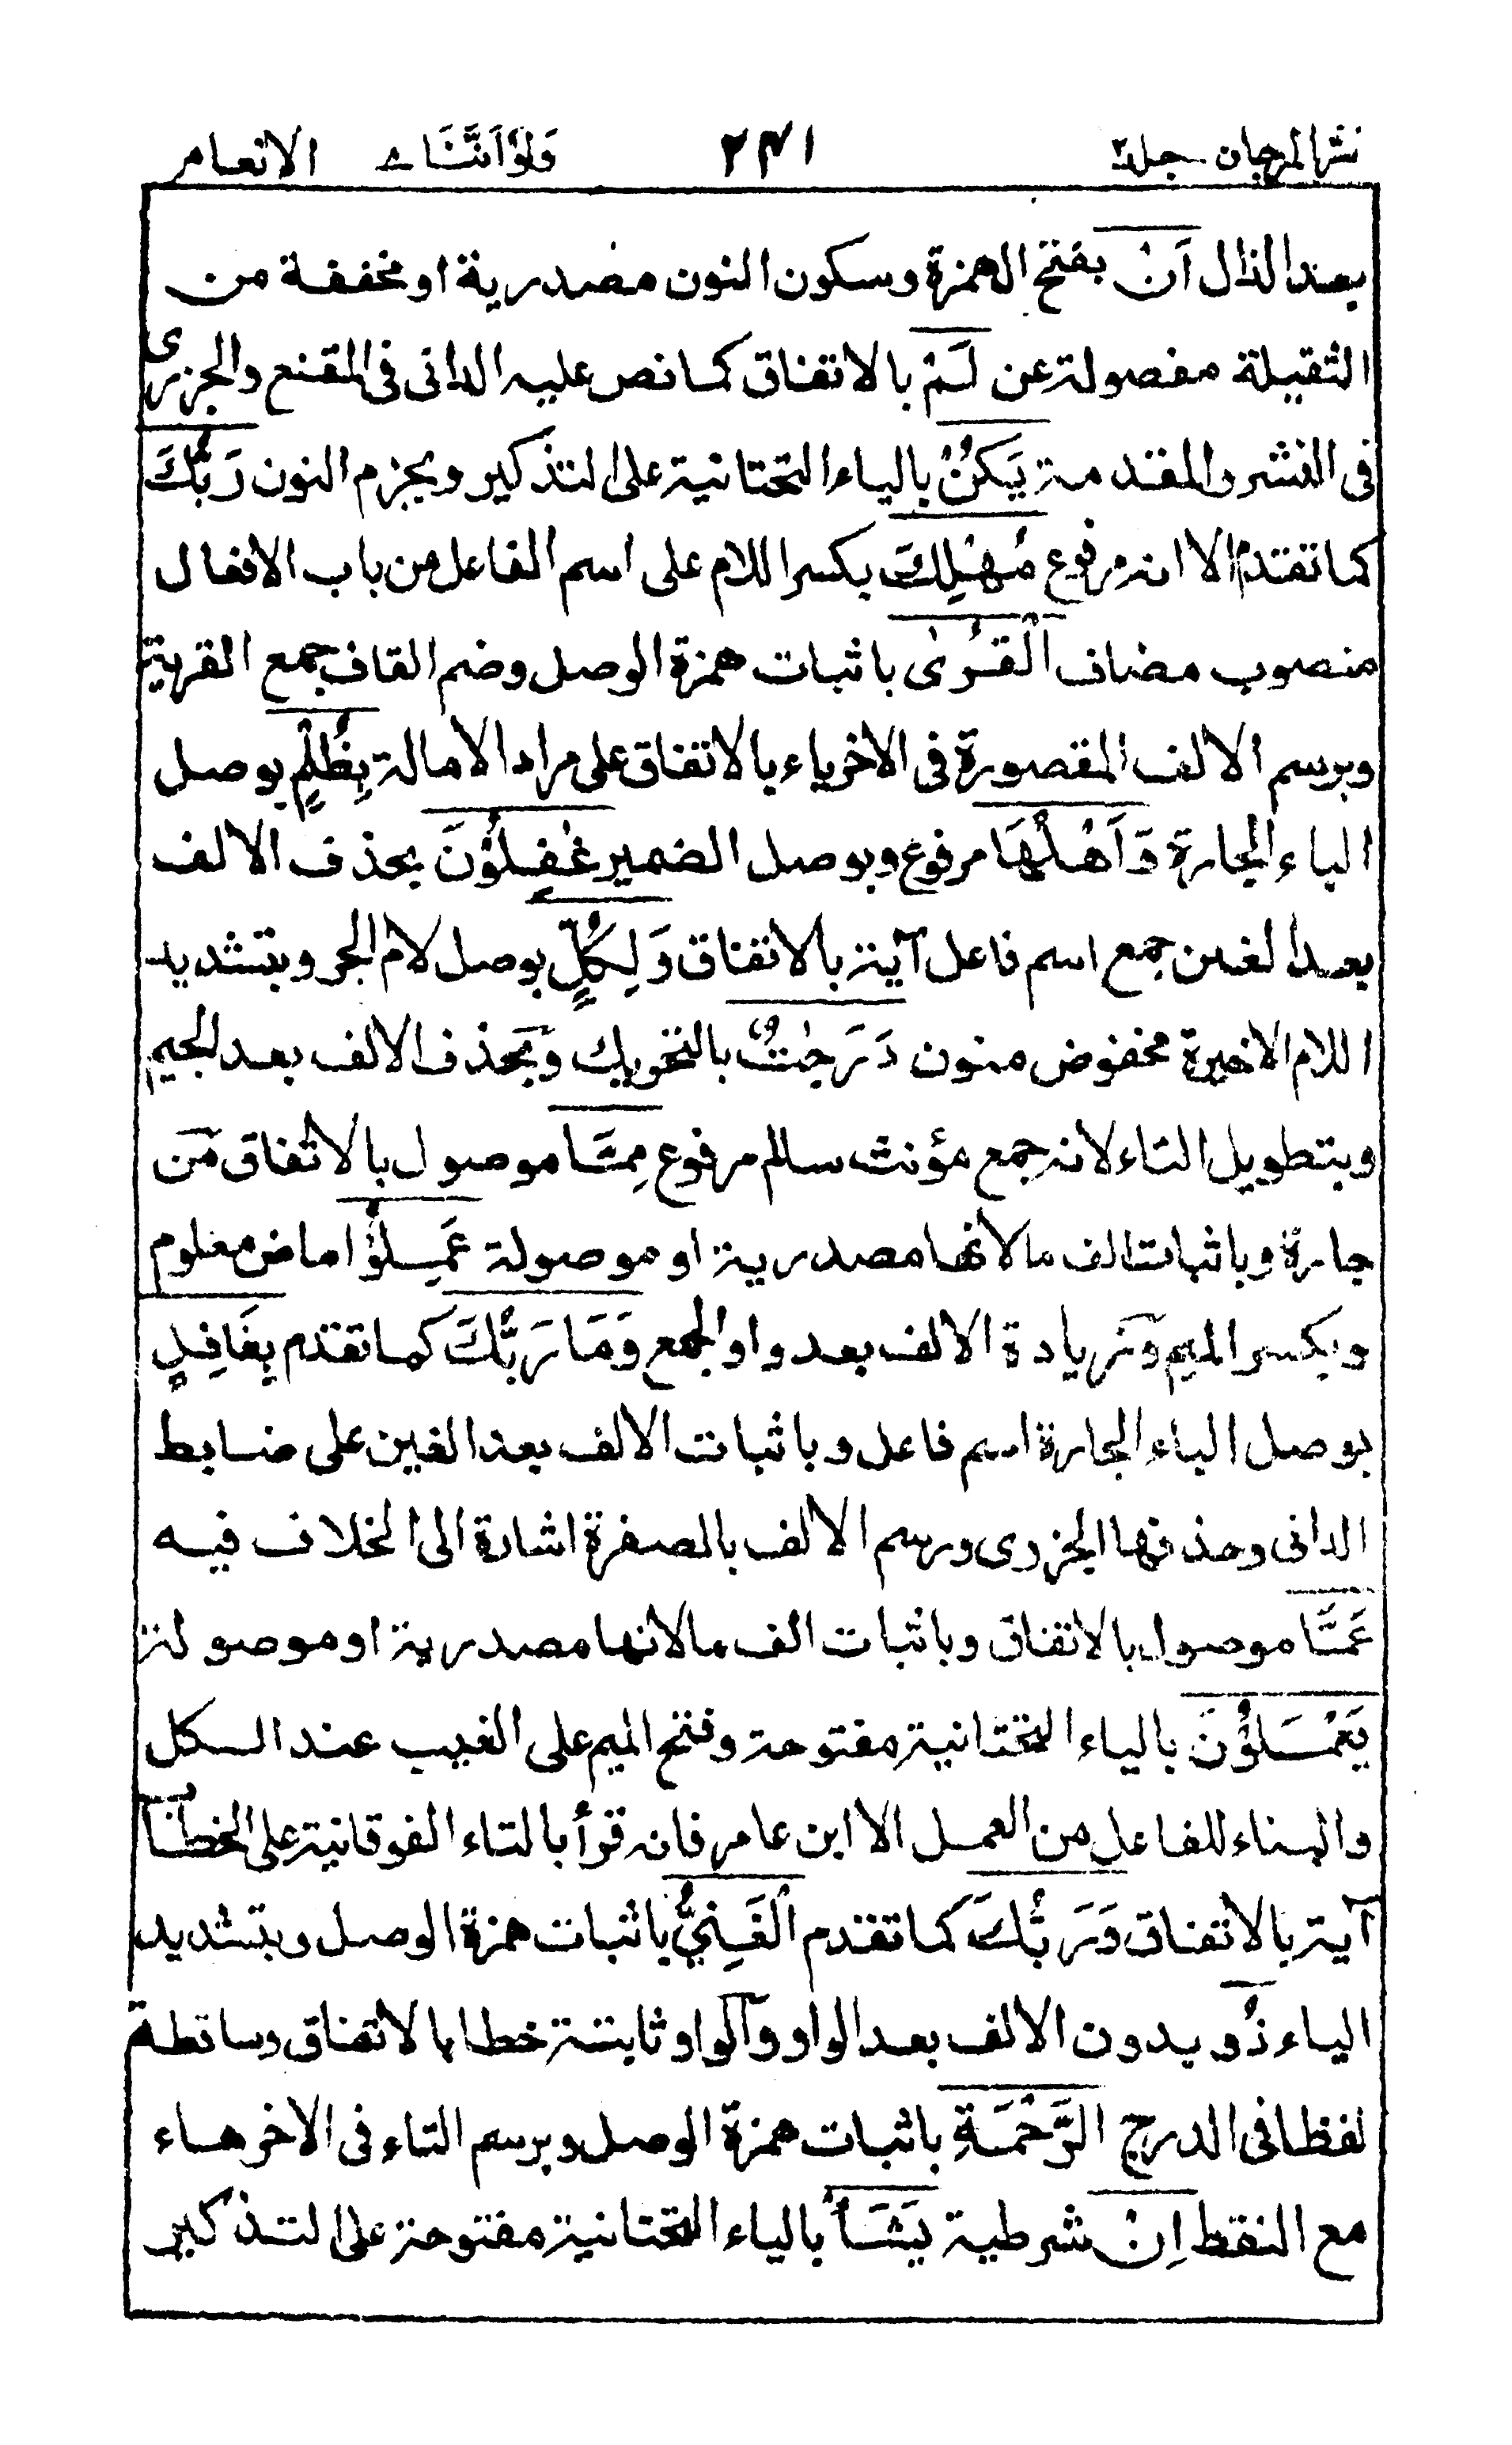 نثر المرجان جلد ٢ ٢٤١ وَلَوْ اَنَّنَا ٨ الانعام
بعد الذال اَنْ بفتح الهمزة وسكون النون مصدرية او مخففة من
الثقيلة مفصولة عن لَمْ بالاتفاق كما نص عليه الدانى فى المقنع والجزرى
فى النشر والمقدمة يَكُنْ بالياء التحتانية على التذكير وبجزم النون رَبُّكَ
كما تقدم الا انه مرفوع مُهْلِكَ بكسر اللام على اسم الفاعل من باب الافعال
منصوب مضاف الْقُرٰى باثبات همزة الوصل وضم القاف جمع القرية
وبرسم الالف المقصورة فى الاخر ياء بالاتفاق على مراد الامالة بِظُلْمٍ بوصل
الباء الجارة وَّاَهْلُهَا مرفوع وبوصل الضمير غٰفِلُوْنَ بحذف الالف
بعد الغين جمع اسم فاعل آية بالاتفاق وَلِكُلٍّ بوصل لام الجر وبتشديد
اللام الاخيرة مخفوض منون دَرَجٰتٌ بالتحريك وبحذف الالف بعد الجيم
وبتطويل التاء لانه جمع مؤنث سالم مرفوع مِمَّا موصول بالاتفاق من
جارة وباثبات الف ما لانها مصدرية او موصولة عَمِلُوْا ماض معلوم
وبكسر الميم وبزيادة الالف بعد واو الجمع وَمَا رَبُّكَ كما تقدم بِغَافِلٍ
بوصل الباء الجارة اسم فاعل وباثبات الالف بعد الغين على ضابط
الدانى وحذفها الجزرى ورسم الالف بالصفرة اشارة الى الخلاف فيه
عَمَّا موصول بالاتفاق وباثبات الف ما لانها مصدرية او موصولة
يَعْمَلُوْنَ بالياء التحتانية مفتوحة وفتح الميم على الغيب عند الكل
والبناء للفاعل من العمل الا ابن عامر فانه قرأ بالتاء الفوقانية على الخطاب
آية بالاتفاق وَرَبُّكَ كما تقدم الْغَنِيُّ باثبات همزة الوصل وبتشديد
الياء ذُو بدون الالف بعد الواو والواو ثابتة خطا بالاتفاق وساقطة
لفظا فى الدرج الرَّحْمَةِ باثبات همزة الوصل وبرسم التاء فى الاخر هاء
مع النقط اِنْ شرطية يَشَأْ بالياء التحتانية مفتوحة على التذكير